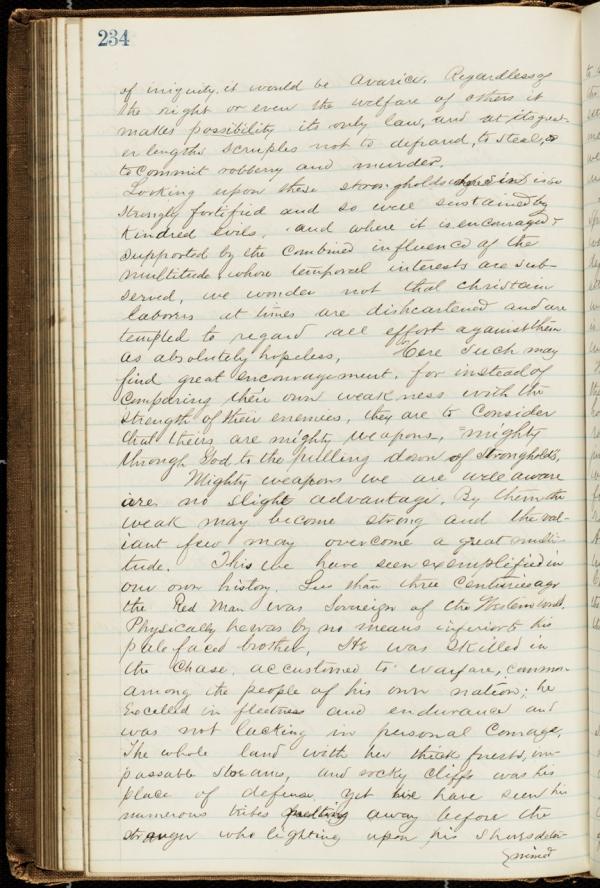 234
of iniquity. it would be Avarice. Regardless of
the right or even the welfare of others it
makes possibility its only law, and at its great-
er lengths scruples not to defraud, to steal, or
to commit robbery and murder.
Looking upon these strongholds where sin is so
strongly fortified and so well sustained by
kindred evils. and where it is encouraged &
supported by the combined influence of the
multitude, whose temporal interests are sub-
served, we wonder not that christain
laborers at times are disheartened and are
tempted to regard all effort against them
as absolutely hopeless. Here such may
find great encouragement. for instead of
comparing their own weakness with the
strength of their enemies, they are to consider
that theirs are mighty weapons, "mighty
through God, to the pulling down of strongholds",
Mighty weapons we are well aware
are no slight advantage. By them the
weak may become strong and the val-
iant few may overcome a great multi-
tude. This we have seen exemplified in
our own history. Less than three centuries ago
the Red Man was Soverign of the Western world.
Physically he was by no means inferior to his
pale faced brother, He was skilled in
the chase, accustomed to warfare, common
among the people of his own nation; he
Excelled in fleetness and endurance and
was not lacking in personal Courage.
The whole land with her thick forests, im-
passable streams, and rocky cliffs was his
place of defense, yet we have seen his
numerous tribes melting away before the
stranger who lighting upon his shores deter-
mined